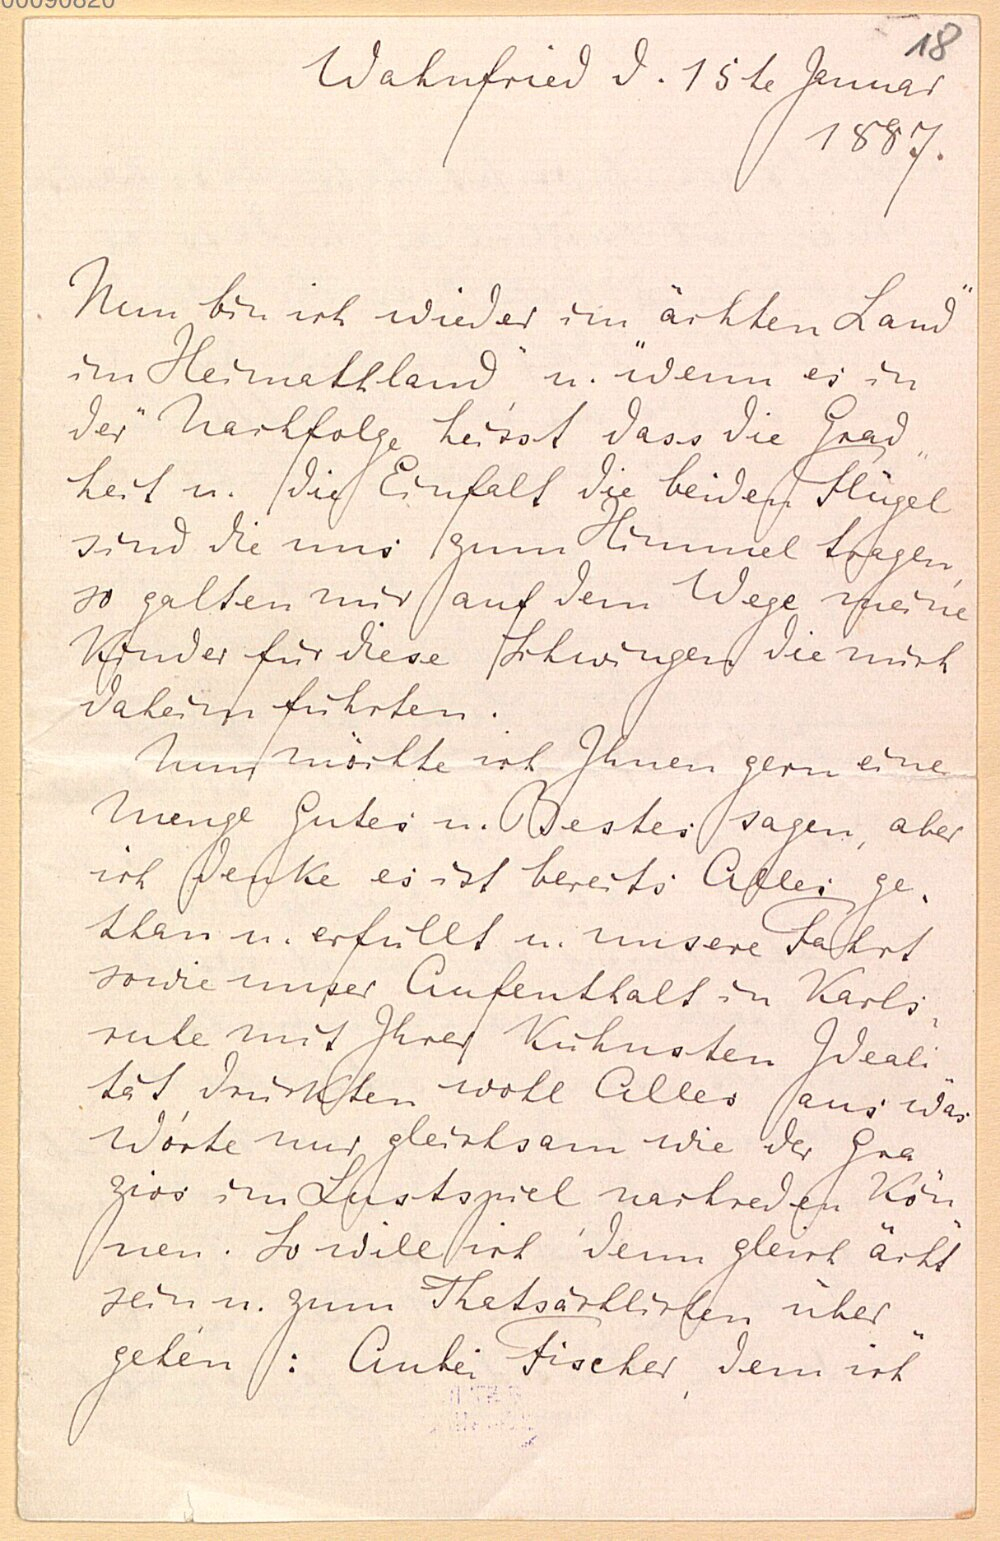 00090820
18
Wahnfried d. 15te Januar
1887.
Nun bin ich wieder im "ächten Land"
im Heimathland" u. wenn es in
der "Nachfolge heisst dass die Grad
heit u. die Einfalt die beiden Flügel
sind die uns zum Himmel tragen,
so galten mir auf dem Wege meine
Kinder für diese Schwingen die mich
daheim führten.
Nun möchte ich Ihnen gern eine
Menge Gutes u. Bestes sagen, aber
ich denke es ist bereits Alles ge-
than u. erfüllt u. unsere Fahrt
sowie unser Aufenthalt in Karls-
ruhe mit Ihrer Kühnsten Ideali
tät drückten wohl Alles aus was
Worte nur gleichsam wie der Gra
zios im Lustspiel nachreden Kön
nen. So will ich denn gleich ächt
sein u. zum Thatsächlichen über
gehen : Anbei Fischer, dem ich